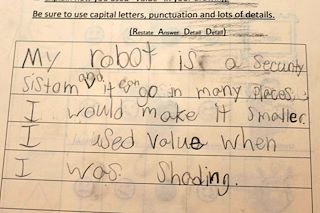 Be sure to use capital letters, punctuation and lots of details.
(Restate Answer Detail Detail)
My robot is a Security
Sistam and it can go in many places.
I would make it smaller.
I used value when
I was Shading.